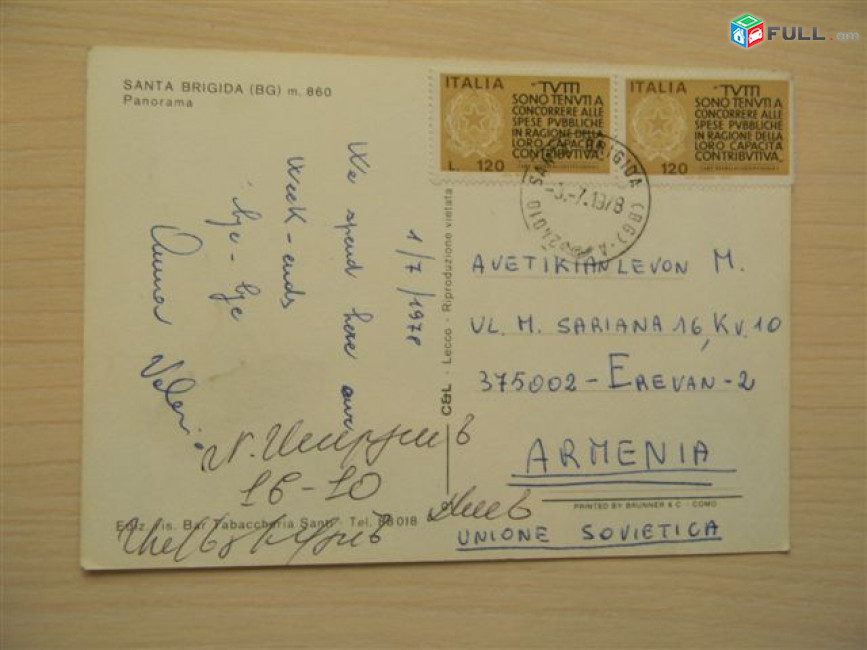 FULL.am
SANTA BRIGIDA (BG) m. 860
Panorama
ITALIA
TVTTI
SONO TENVTI A
CONCORRERE ALLE
SPESE PVBBLICHE
IN RAGIONE DELLA
LORO CAPACITÀ
CONTRIBVTIVA
L. 120
ITALIA
TVTTI
SONO TENVTI A
CONCORRERE ALLE
SPESE PVBBLICHE
IN RAGIONE DELLA
LORO CAPACITÀ
CONTRIBVTIVA
120
24010 SANTA BRIGIDA (BG)
-7.1978
1/7/1978
We spend here our
week-ends
bye-bye
Anna Valerio
C&L - Lecco - Riproduzione vietata
AVETIKIAN LEVON M.
VL. M. SARIANA 16, KV. 10
375002 - EREVAN - 2
ARMENIA
PRINTED BY BRUNNER & C. - COMO
UNIONE SOVIETICA
16-10
Ediz. ris. Bar Tabaccheria Santi - Tel. 88018